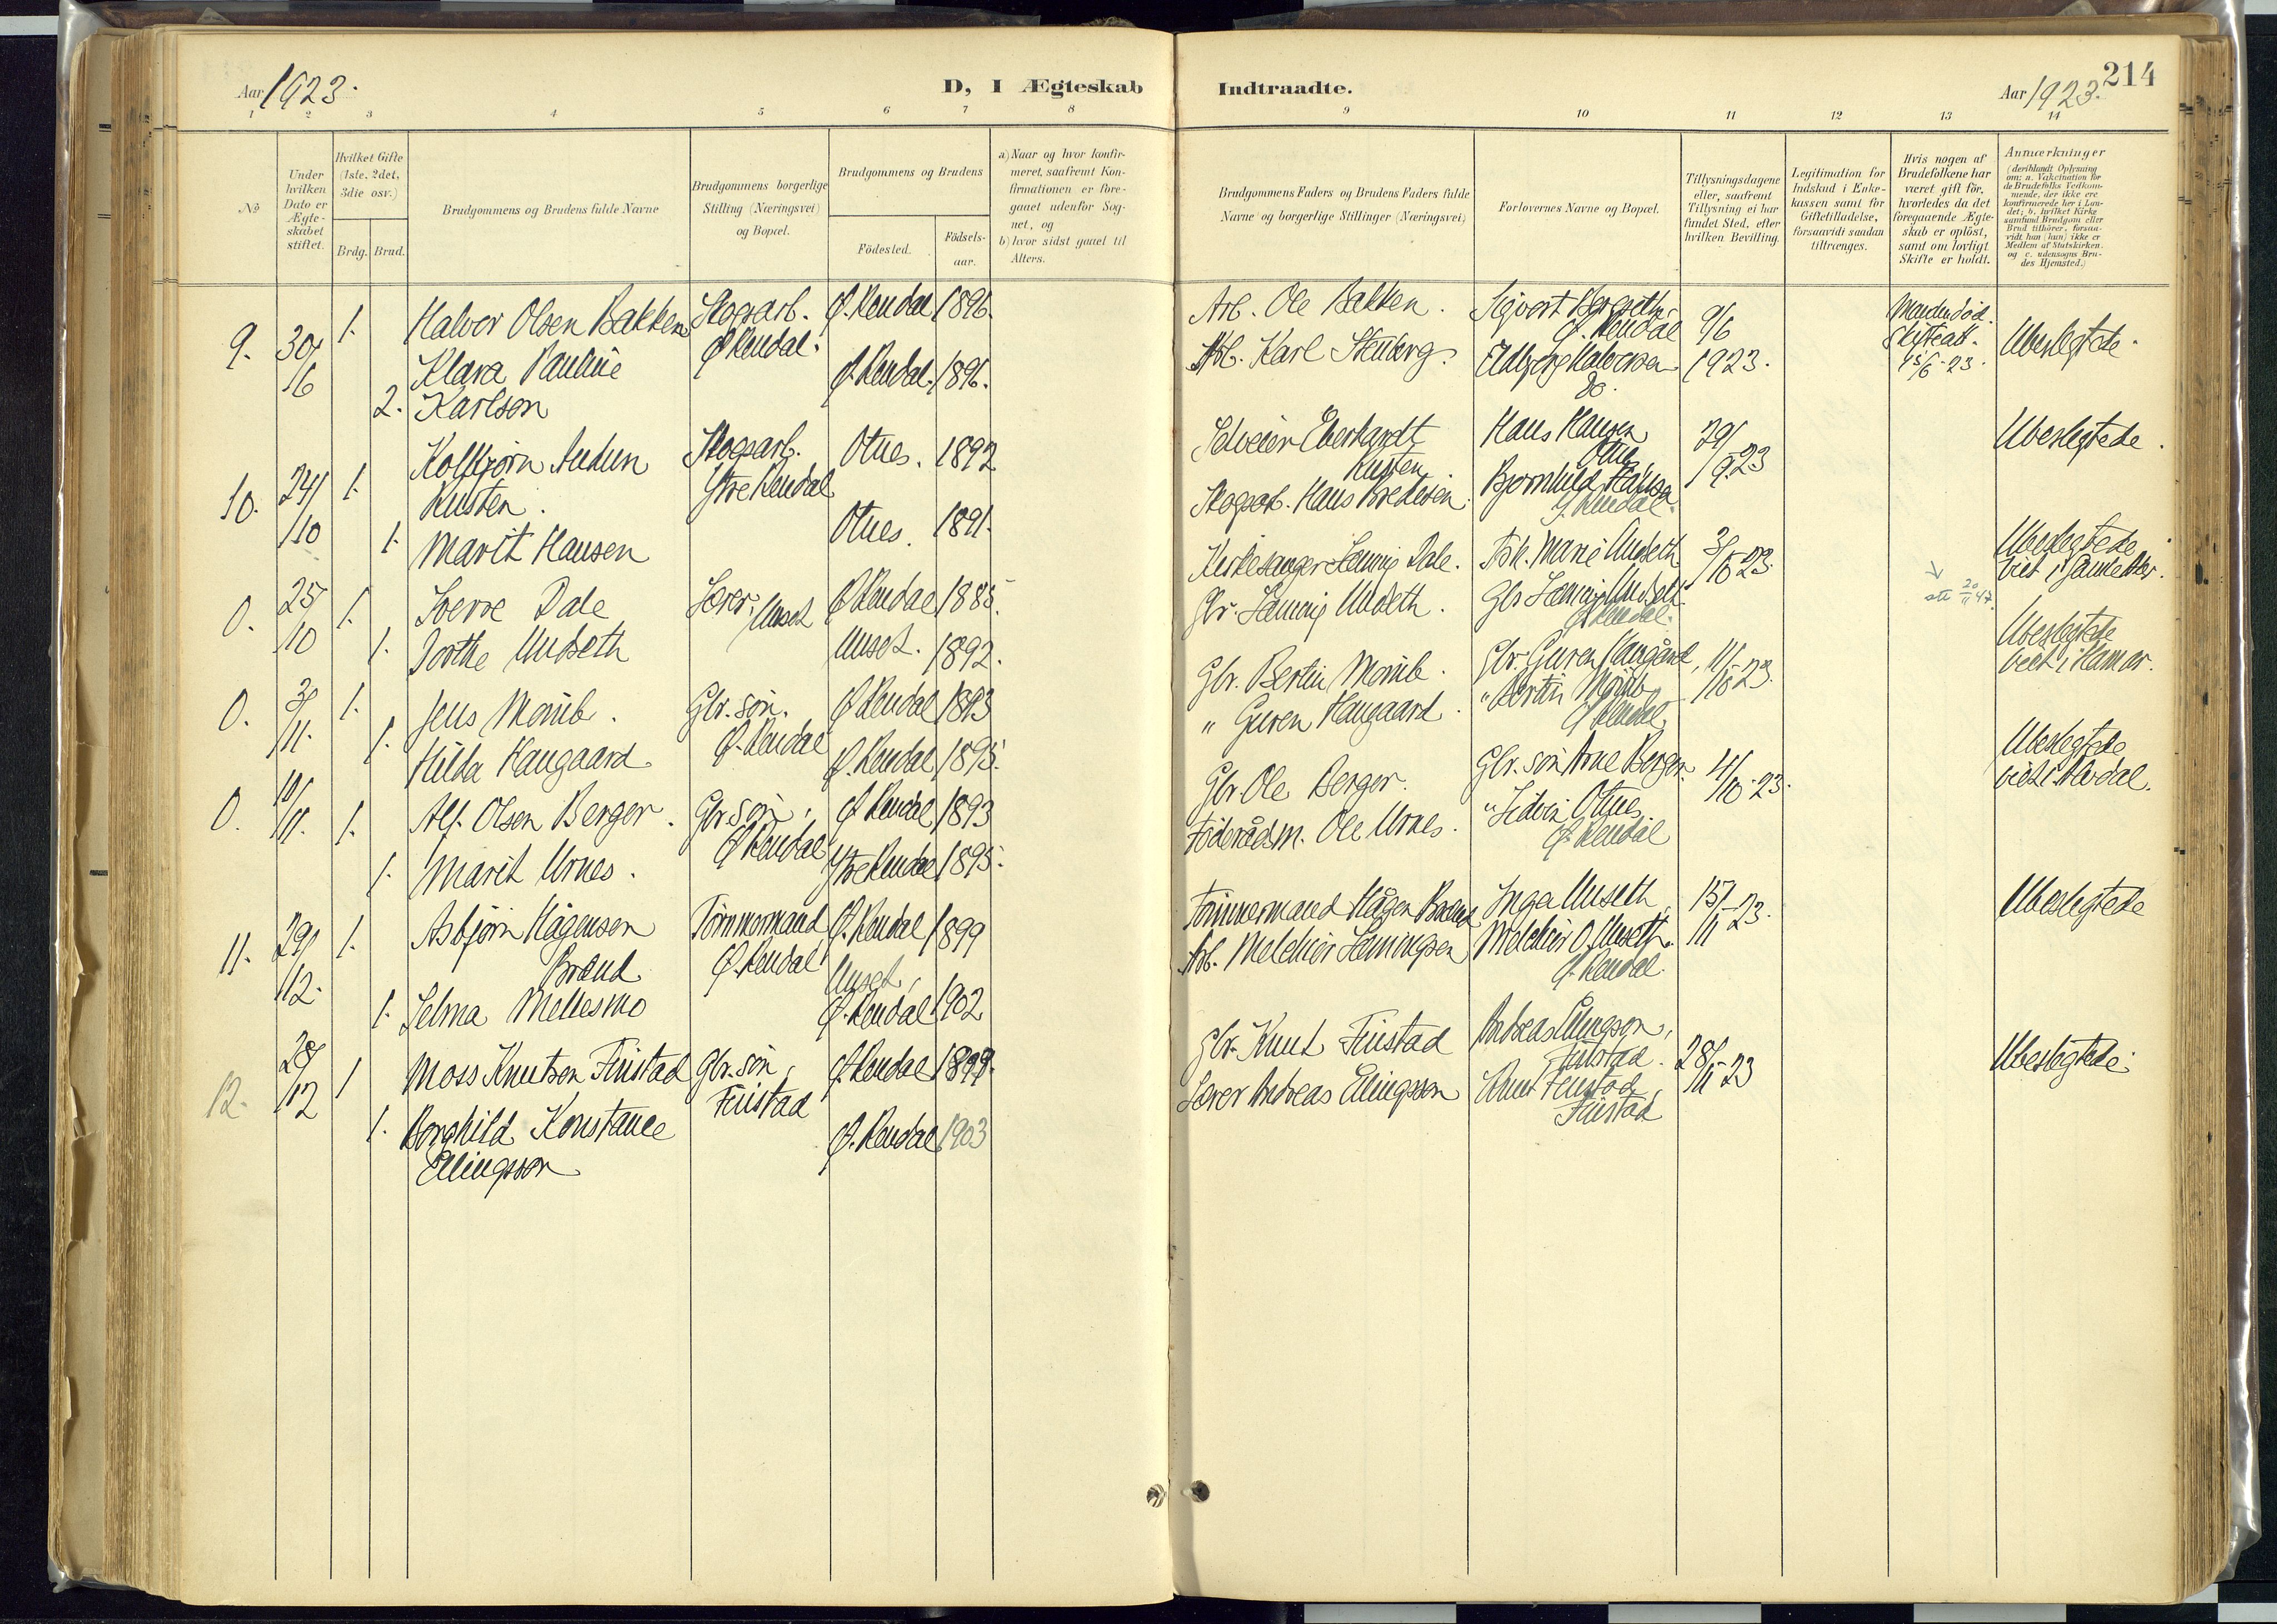 Aar 1923.
D, I Ægteskab
1 2 3 4 5 6 7 8
№
Under hvilken Dato er Ægteskabet stiftet.
Hvilket Gifte (1ste, 2det, 3die osv.)
Brdg. Brud.
Brudgommens og Brudens fulde Navne
Brudgommens borgerlige Stilling (Næringsvei) og Bopæl.
Brudgommens og Brudens
Fødested.
Fødselsaar.
a) Naar og hvor konfirmeret, saafremt Konfirmationen er foregaaet udenfor Sognet, og
b) hvor sidst gaaet til Alters.
9. 30/6 1. Halvor Olsen Bakken Skogsarb. Ø. Rendal 1896.
Ø Rendal.
2. Klara Pauline Karlson Ø. Rendal. 1896.
10. 24/10 1. Kolbjørn Audun Rusten. Skogsarb. Otnes. 1892
Ytre Rendal
1. Marit Hansen Otnes. 1891.
0. 25/10 1. Sverre Dale Lærer, Unset Ø Rendal 1885
1. Dorthe Undseth Unset. 1892.
0. 3/11. 1. Jens Momb. Gbr. søn. Ø Rendal 1893
Ø. Rendal
1. Hilda Haugaard Ø. Rendal 1895.
0. 10/11. 1. Alf. Olsen Berger. Gbr søn, Ø Rendal 1893
Ø Rendal
1. Marit Urnes. Ytre Rendal 1895.
11. 29/12. 1. Asbjørn Hågensen Brænd Tømmermand Ø. Rendal 1899
Ø. Rendal
1. Selma Mellesmo Unset, Ø. Rendal 1902
12. 28/12 1 Moss Knutsen Finstad Gbr. søn, Ø. Rendal 1899.
Finstad
1. Borghild Konstance Ellingsson Ø. Rendal 1903
Indtraadte.
Aar 1923. 214
9 10 11 12 13 14
Brudgommens Faders og Brudens Faders fulde Navne og borgerlige Stillinger (Næringsvei)
Forlovernes Navne og Bopæl.
Tillysningsdagene eller, saafremt Tillysning ei har fundet Sted, efter hvilken Bevilling.
Legitimation for Indskud i Enkekassen samt for Giftetilladelse, forsaavidt saadan tiltrænges.
Hvis nogen af Brudefolkene har været gift før, hvorledes da det foregaaende Ægteskab er opløst, samt om lovligt Skifte er holdt.
Anmærkninger (deriblandt Oplysning om: a. Vakcination for de Brudefolks Vedkommende, der ikke ere konfirmerede her i Landet; b. hvilket Kirkesamfund Brudgom eller Brud tilhører, forsaavidt han (hun) ikke er Medlem af Statskirken. og c. udensogns Brudes Hjemsted.)
Arb. Ole Bakken. Sigvart Bergseth, Ø. Rendal 9/6 1923. Manden død. Skifteatt. 15/6-23. Ubeslegtede.
Arb. Karl Stenberg. Halvorsen do.
Selveier Eberhardt Rusten Hans Hansen Otnes 29/9 23 Ubeslegtede.
Skogsarb. Hans Bredesen. Bjørnhild Hansen Y. Rendal.
Kirkesanger Heming Dale. Frk. Marie Undseth 3/10 23. Ubeslegtede viet i
Gbr. Heming Undseth. Gbr Heming Undseth Ø Rendal.
20/11 47.
Gbr. Bertin Momb. Gbr. Guren Haugård, 11/10 23. Ubeslegtede viet i Hamar.
" Guren Haugaard. " Bertin Momb Ø Rendal
Gbr Ole Berger. Gbr. søn Arne Berger 4/10 23. Ubeslegtede
Føderådsm. Ole Urnes. " Otnes, Ø. Rendal
Tømmermand Hågen Brænd Inga Unseth, 15/11 23. Ubeslegtede
Arb. Melchior Hemingsen Melchior O. Unseth. Ø. Rendal.
Gbr. Knut Finstad Andreas Ellingson, Finstad. 28/11 23 Ubeslegtede.
Lærer Andreas Ellingsson Knut Finstad, Finstad